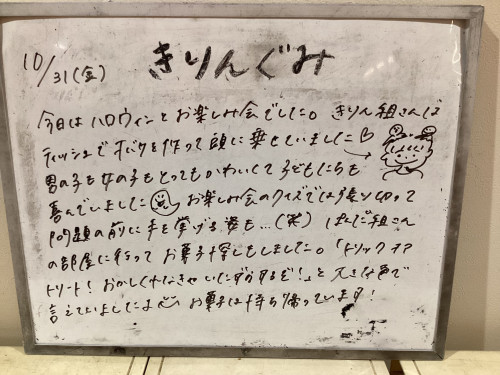 10/31(金) きりんぐみ
今日はハロウィンとお楽しみ会でした。きりん組さんは
ティッシュでオバケを作って頭に乗せていました♡
男の子も女の子もとってもかわいくて子どもたちも
喜んでいました お楽しみ会のクイズでは張り切って
問題の前に手を挙げる姿も…(笑) ぱんだ組さん
の部屋に行ってお菓子探しもしました。「トリックオア
トリート!おかしくれなきゃいたずらするぞ!」と大きな声で
言えていましたよ お菓子は持ち帰っています!